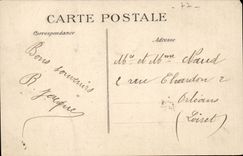 72
CARTE POSTALE
Correspondance
Adresse
Bons souvenirs
B.
Mr et Mme Naud
2 rue Chardon 2
Orléans
(Loiret)